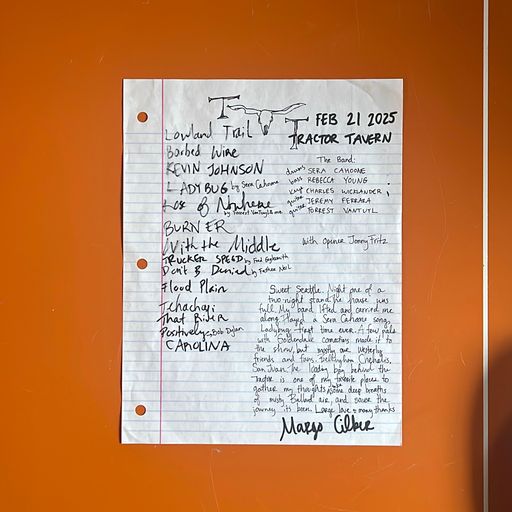 T T
FEB 21 2025
TRACTOR TAVERN
Lowland Trail
Barbed Wire
KEVIN JOHNSON
LADYBUG by Sera Cahoone
of Nowhere
by Forrest VanTuyl & me
BURNER
With the Middle
TRUCKER SPEED by Fred Eaglesmith
Don't B Denied by Father Neil
Flood Plain
Tehachapi
That River
Positively Bob Dylan
CAROLINA
The Band:
drums SERA CAHOONE
bass REBECCA YOUNG
keys CHARLES WICKLANDER
guitar JEREMY FERRARA
guitar FORREST VANTUYL
with opener Jonny Fritz
Sweet Seattle. Night one of a
two-night stand, the house was
full. My band lifted and carried me
along. Played a Sera Cahoone song,
Ladybug - first time ever. A few pals
with Goldendale connections made it to
the show, but mostly our Westerly
friends and fans. Bellingham, Chehalis,
San Juan. The loading bay behind the
Tractor is one of my favorite places to
gather my thoughts, some deep breaths
of misty Ballard air, and savor the
journey it's been. Large love & many thanks
Margo Cilker